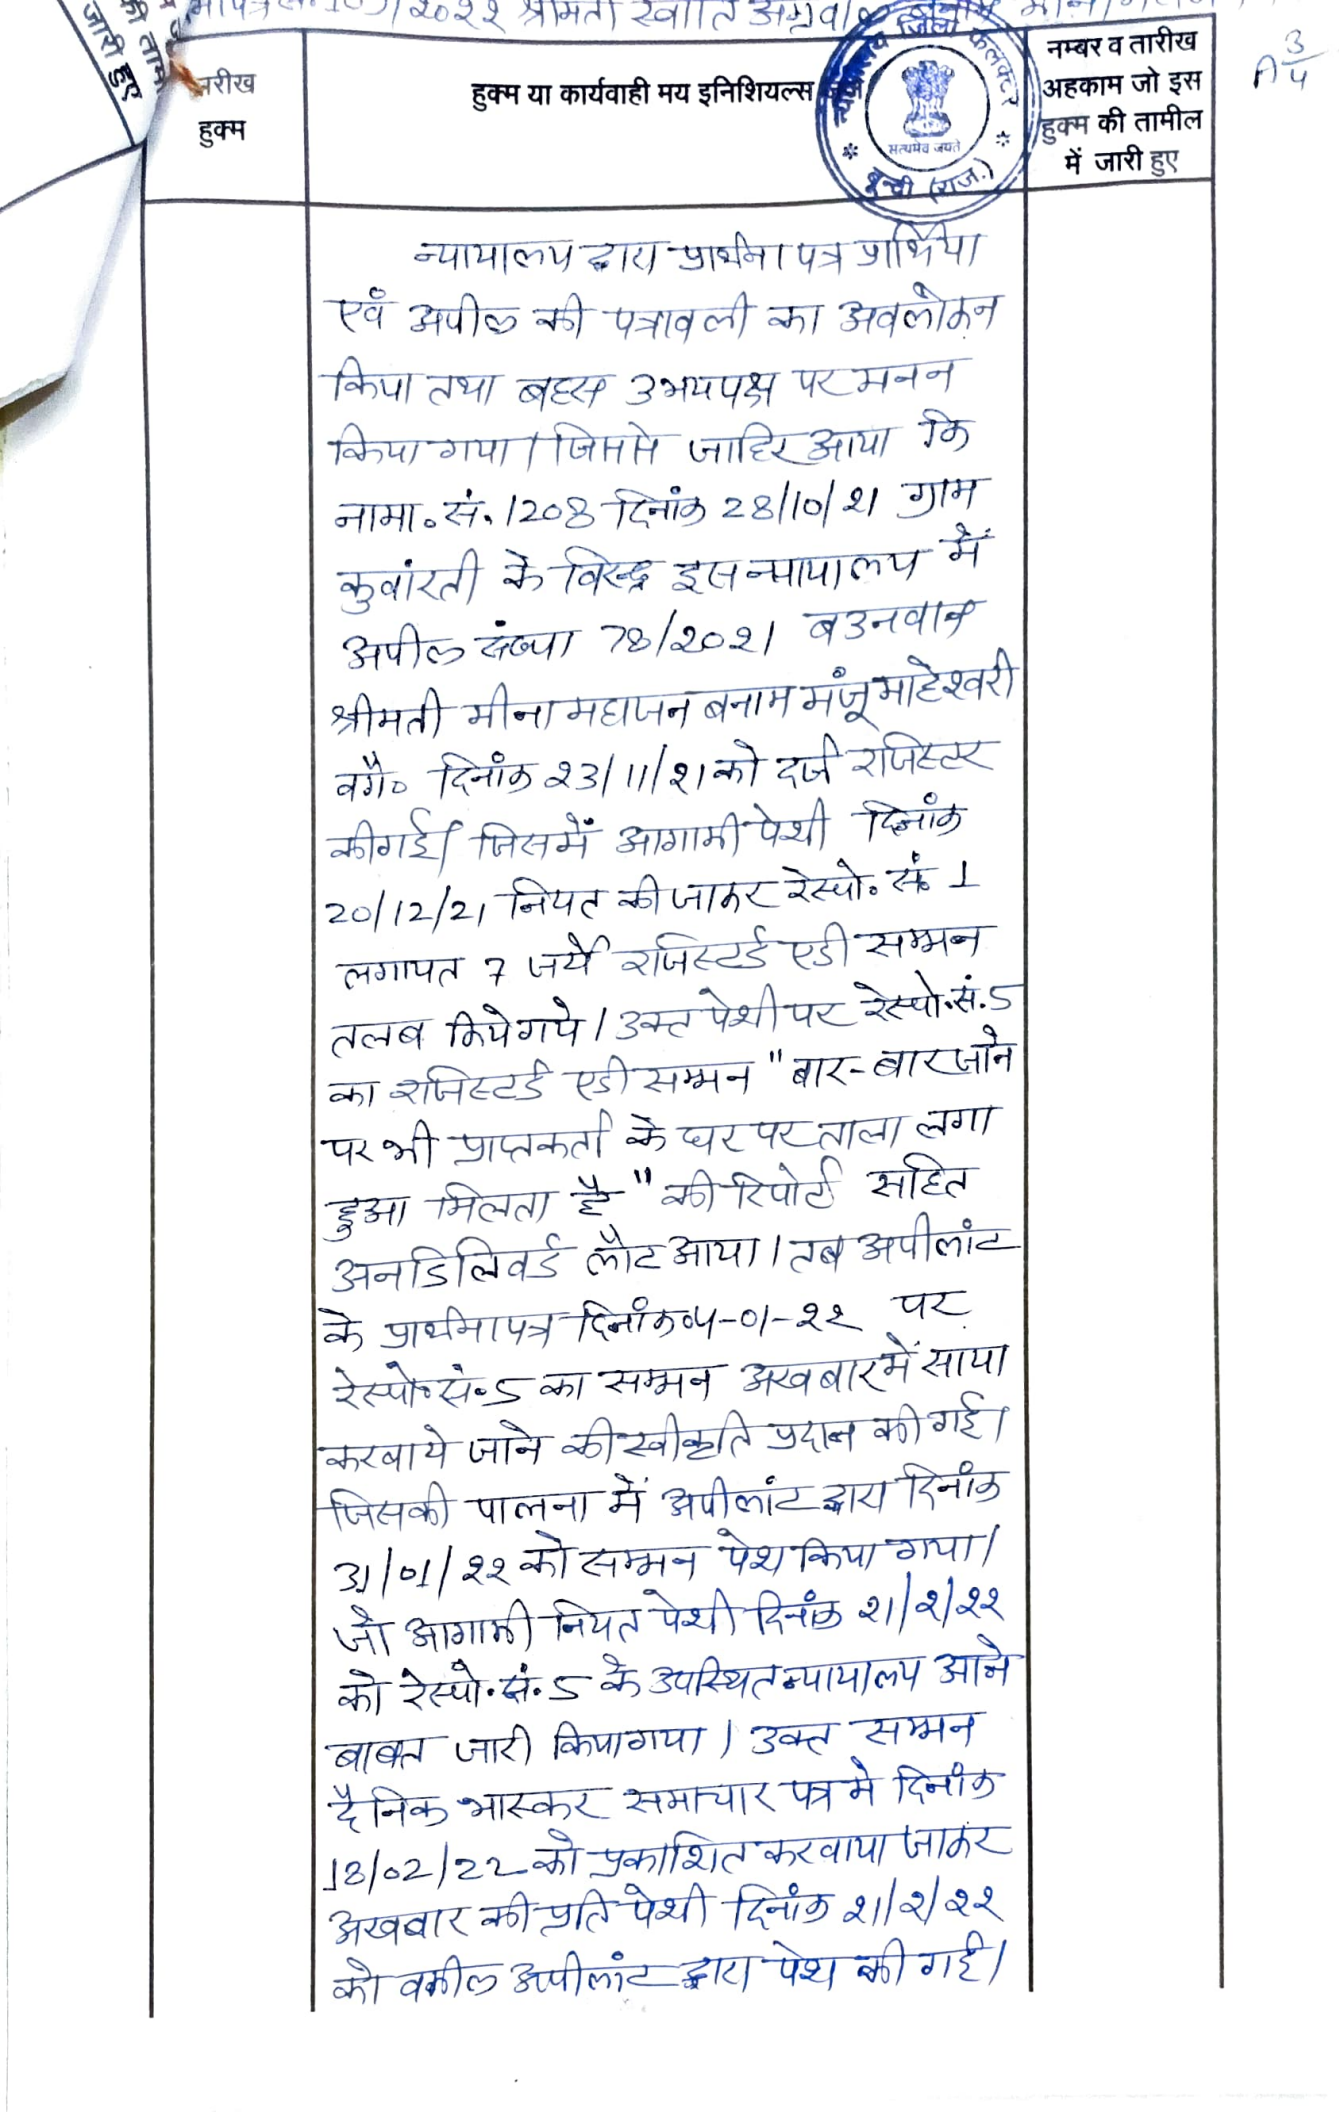 2022 श्रीमती स्वाति अग्रवाल
जारी हुए
तारीख
हुक्म
हुक्म या कार्यवाही मय इनिशियल्स
नम्बर व तारीख
अहकाम जो इस
हुक्म की तामील
में जारी हुए
A 3/4
जिला कलक्टर
सत्यमेव जयते
बून्दी (राज.)
न्यायालय द्वारा प्रार्थना पत्र प्रार्थिया
एवं अपील की पत्रावली का अवलोकन
किया तथा बहस उभयपक्ष पर मनन
किया गया। जिससे जाहिर आया कि
नामा॰ सं. 1208 दिनांक 28/10/21 ग्राम
कुवांरती के विरूद्ध इस न्यायालय में
अपील संख्या 78/2021 बउनवान
श्रीमती मीना महाजन बनाम मंजू माहेश्वरी
वगै॰ दिनांक 23/11/21 को दर्ज रजिस्टर
की गई। जिसमें आगामी पेशी दिनांक
20/12/21 नियत की जाकर रेस्पो॰ सं. 1
लगायत 7 जर्ये रजिस्टर्ड एडी सम्मन
तलब किये गये। उक्त पेशी पर रेस्पो. सं. 5
का रजिस्टर्ड एडी सम्मन "बार-बार जाने
पर भी प्राप्तकर्ता के घर पर ताला लगा
हुआ मिलता है" की रिपोर्ट सहित
अनडिलिवर्ड लौट आया। तब अपीलांट
के प्रार्थना पत्र दिनांक 04-01-22 पर
रेस्पो॰ सं॰ 5 का सम्मन अखबार में साया
करवाये जाने की स्वीकृति प्रदान की गई।
जिसकी पालना में अपीलांट द्वारा दिनांक
31/01/22 को सम्मन पेश किया गया।
जो आगामी नियत पेशी दिनांक 21/2/22
को रेस्पो. सं. 5 के उपस्थित न्यायालय आने
बाबत जारी किया गया। उक्त सम्मन
दैनिक भास्कर समाचार पत्र मे दिनांक
18/02/22 को प्रकाशित करवाया जाकर
अखबार की प्रति पेशी दिनांक 21/2/22
को वकील अपीलांट द्वारा पेश की गई।